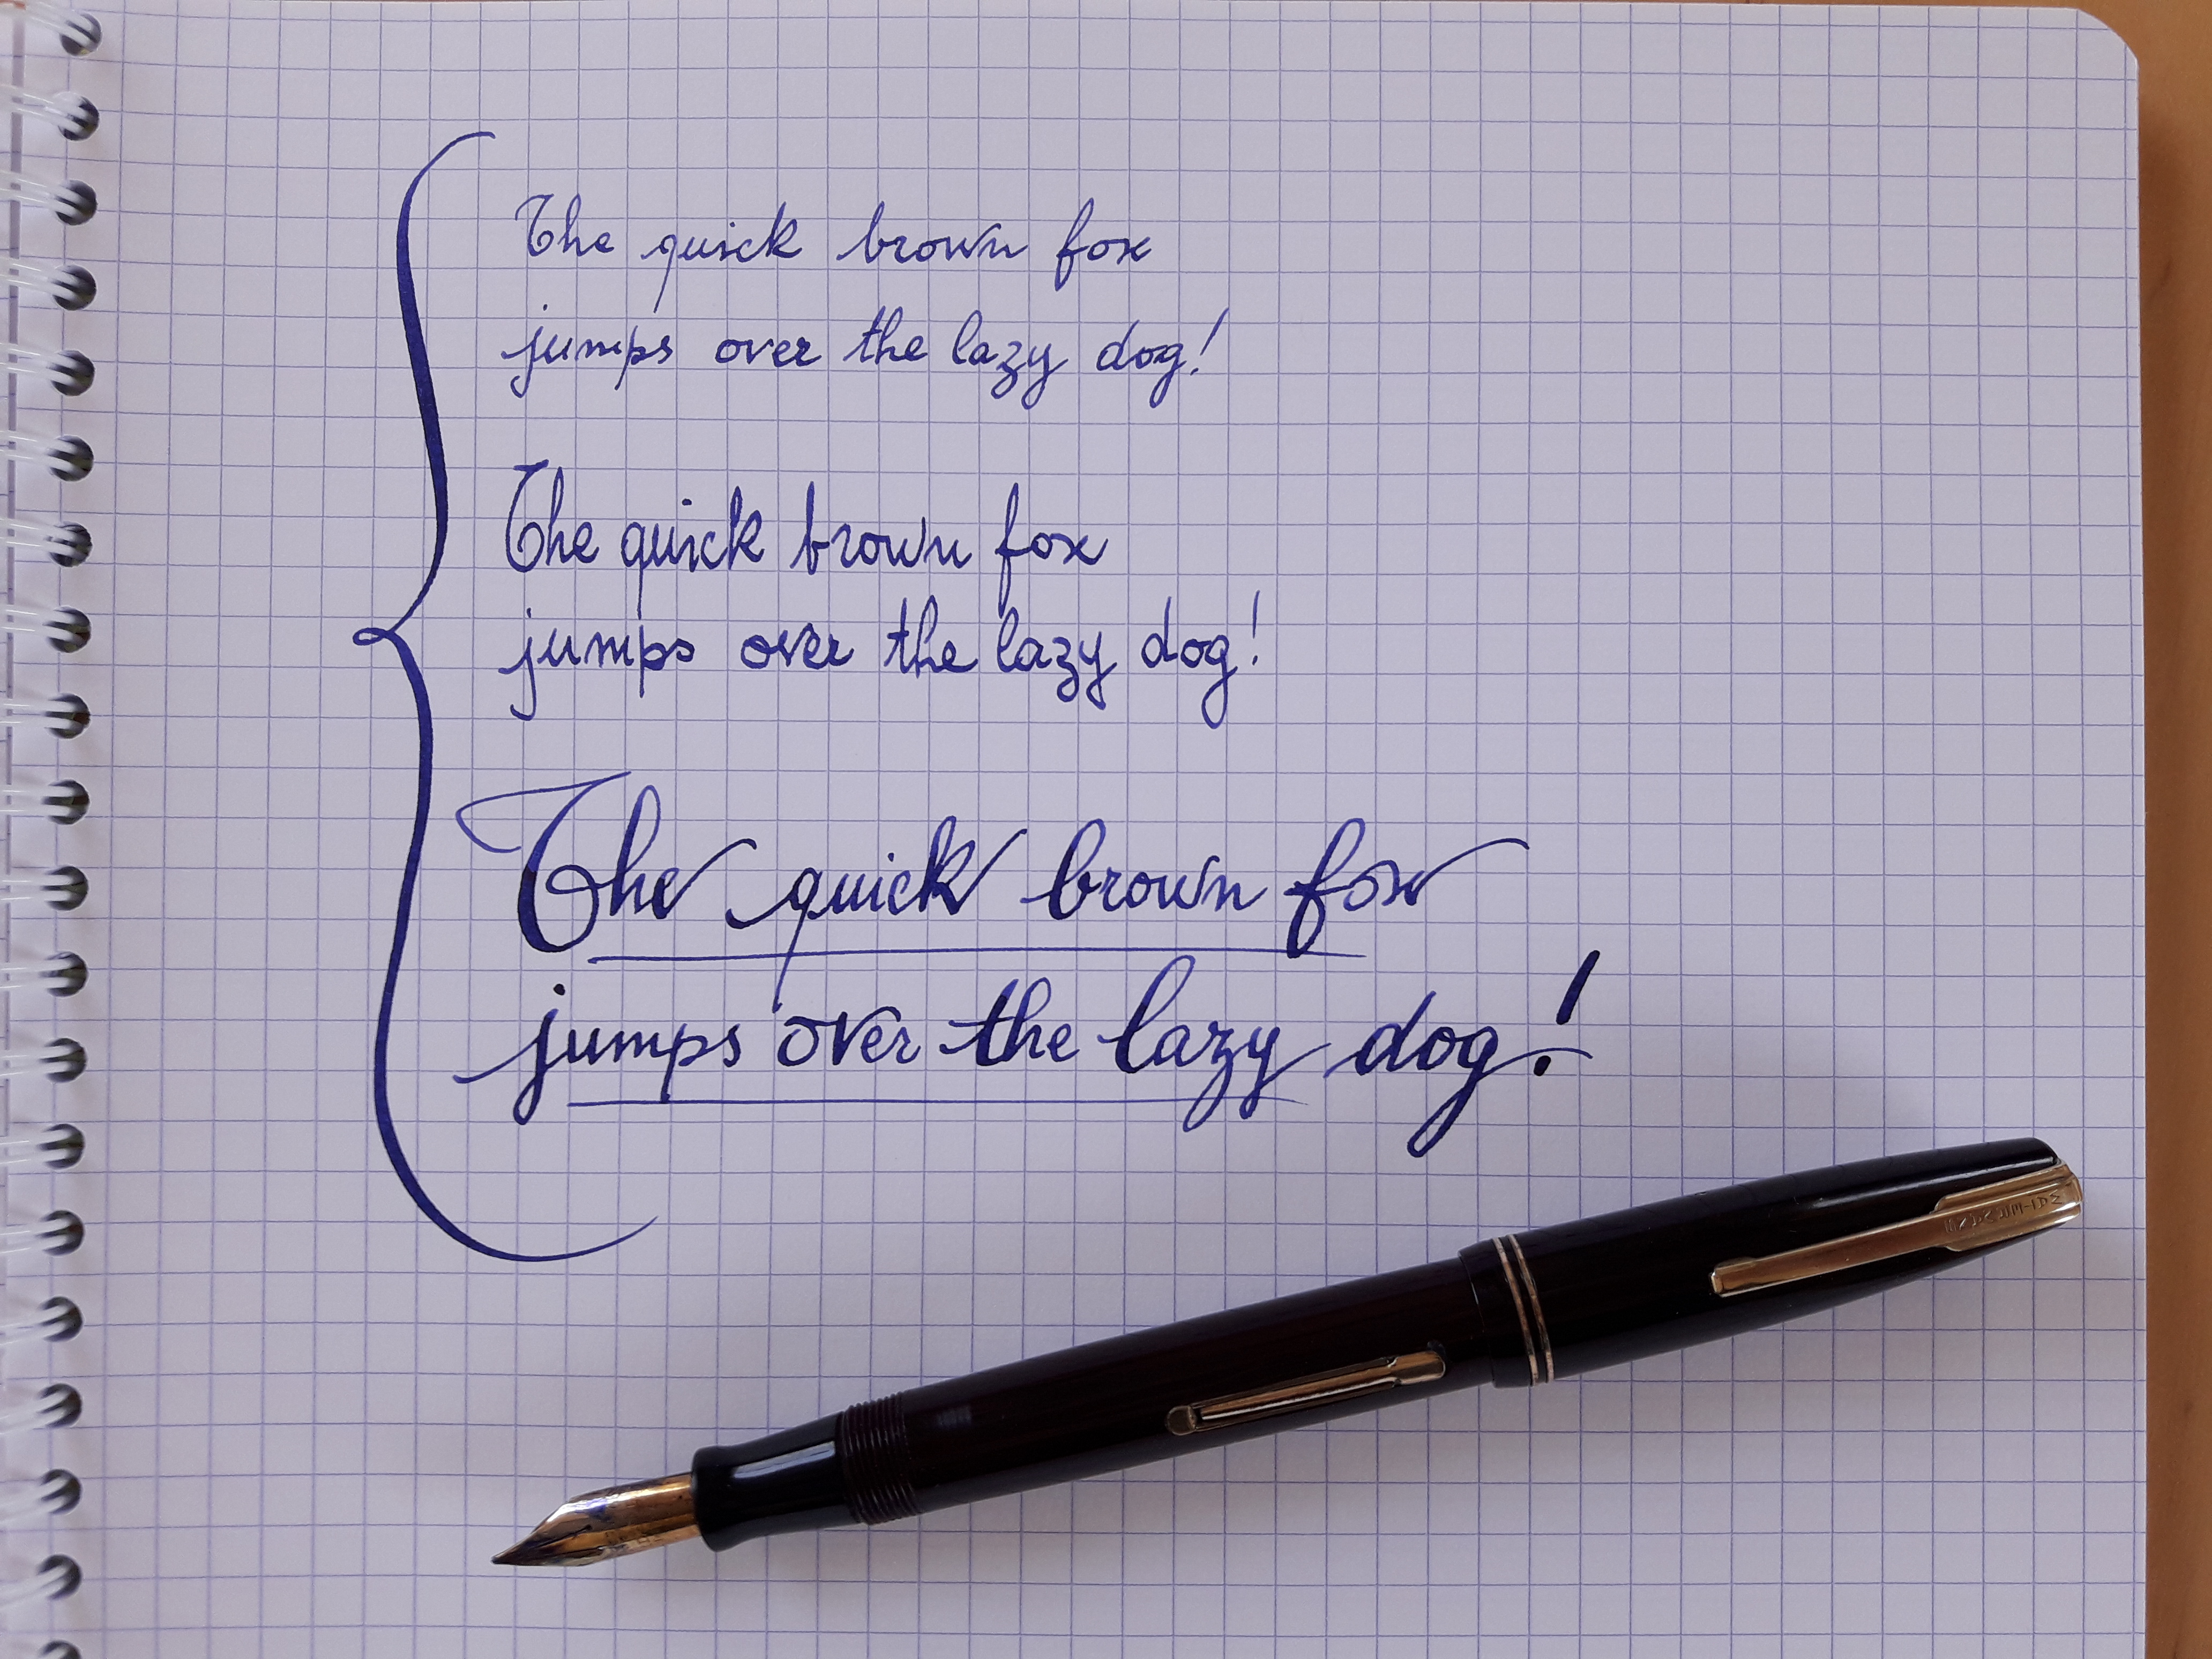 The quick brown fox
jumps over the lazy dog!
The quick brown fox
jumps over the lazy dog!
The quick brown fox
jumps over the lazy dog!
WATERMAN'S